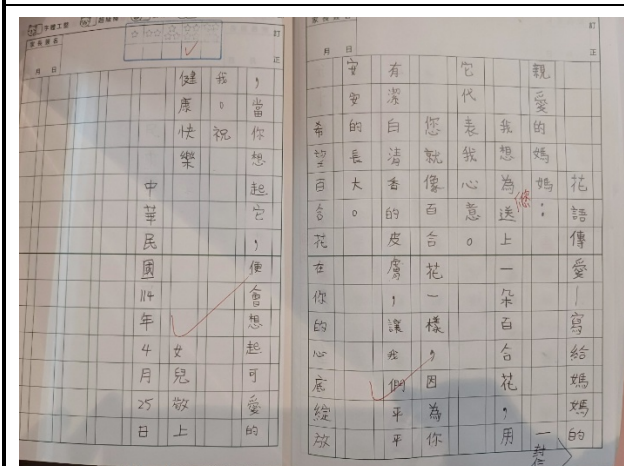 訂正
月 日
花語傳愛—寫給媽媽的
一封
親愛的媽媽：
我想為送上一朵百合花，用
您
它代表我心意。
您就像百合花一樣，因為你
有潔白清香的皮膚，讓我們平平
安安的長大。
希望百合花在你的心底綻放
字體工整
家長簽名
訂正
月 日
，當你想起它，便會想起可愛的
我。祝
健康快樂
女兒敬上
中華民國114年4月25日